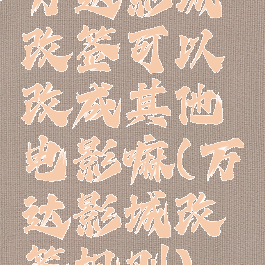 万达影城
改签可以
改成其他
电影嘛(万
达影城改
签规则)